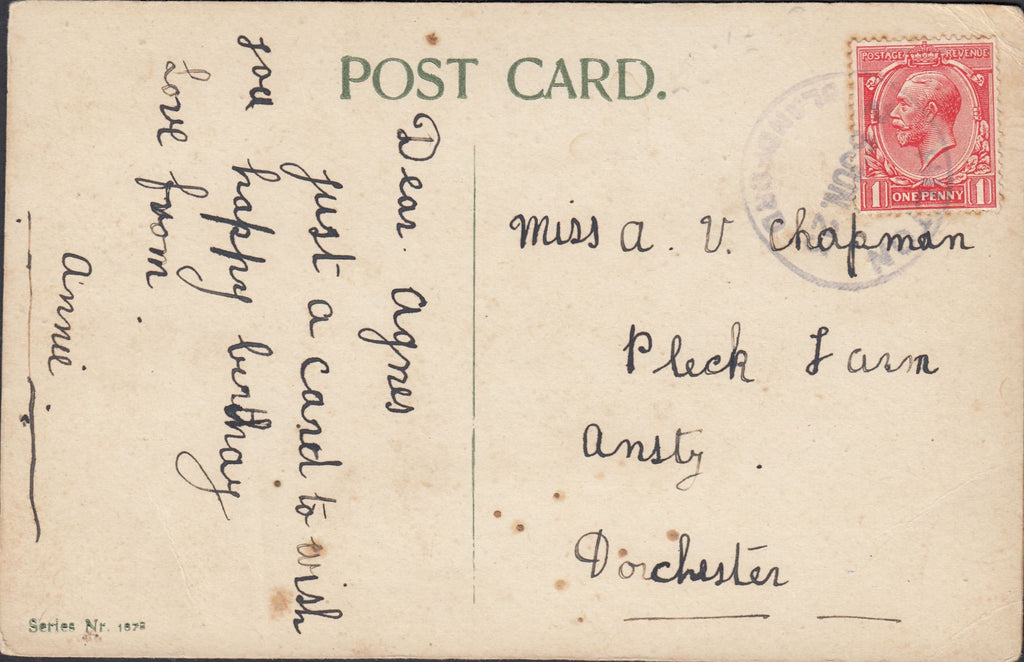 POST CARD.
POSTAGE REVENUE
1 ONE PENNY 1
JUN. 2
Dear. Agnes
just a card to wish
you happy birthay
Love from
Annie
Miss A. V. Chapman
Pleck Farm
Ansty.
Dorchester
Series Nr. 1678